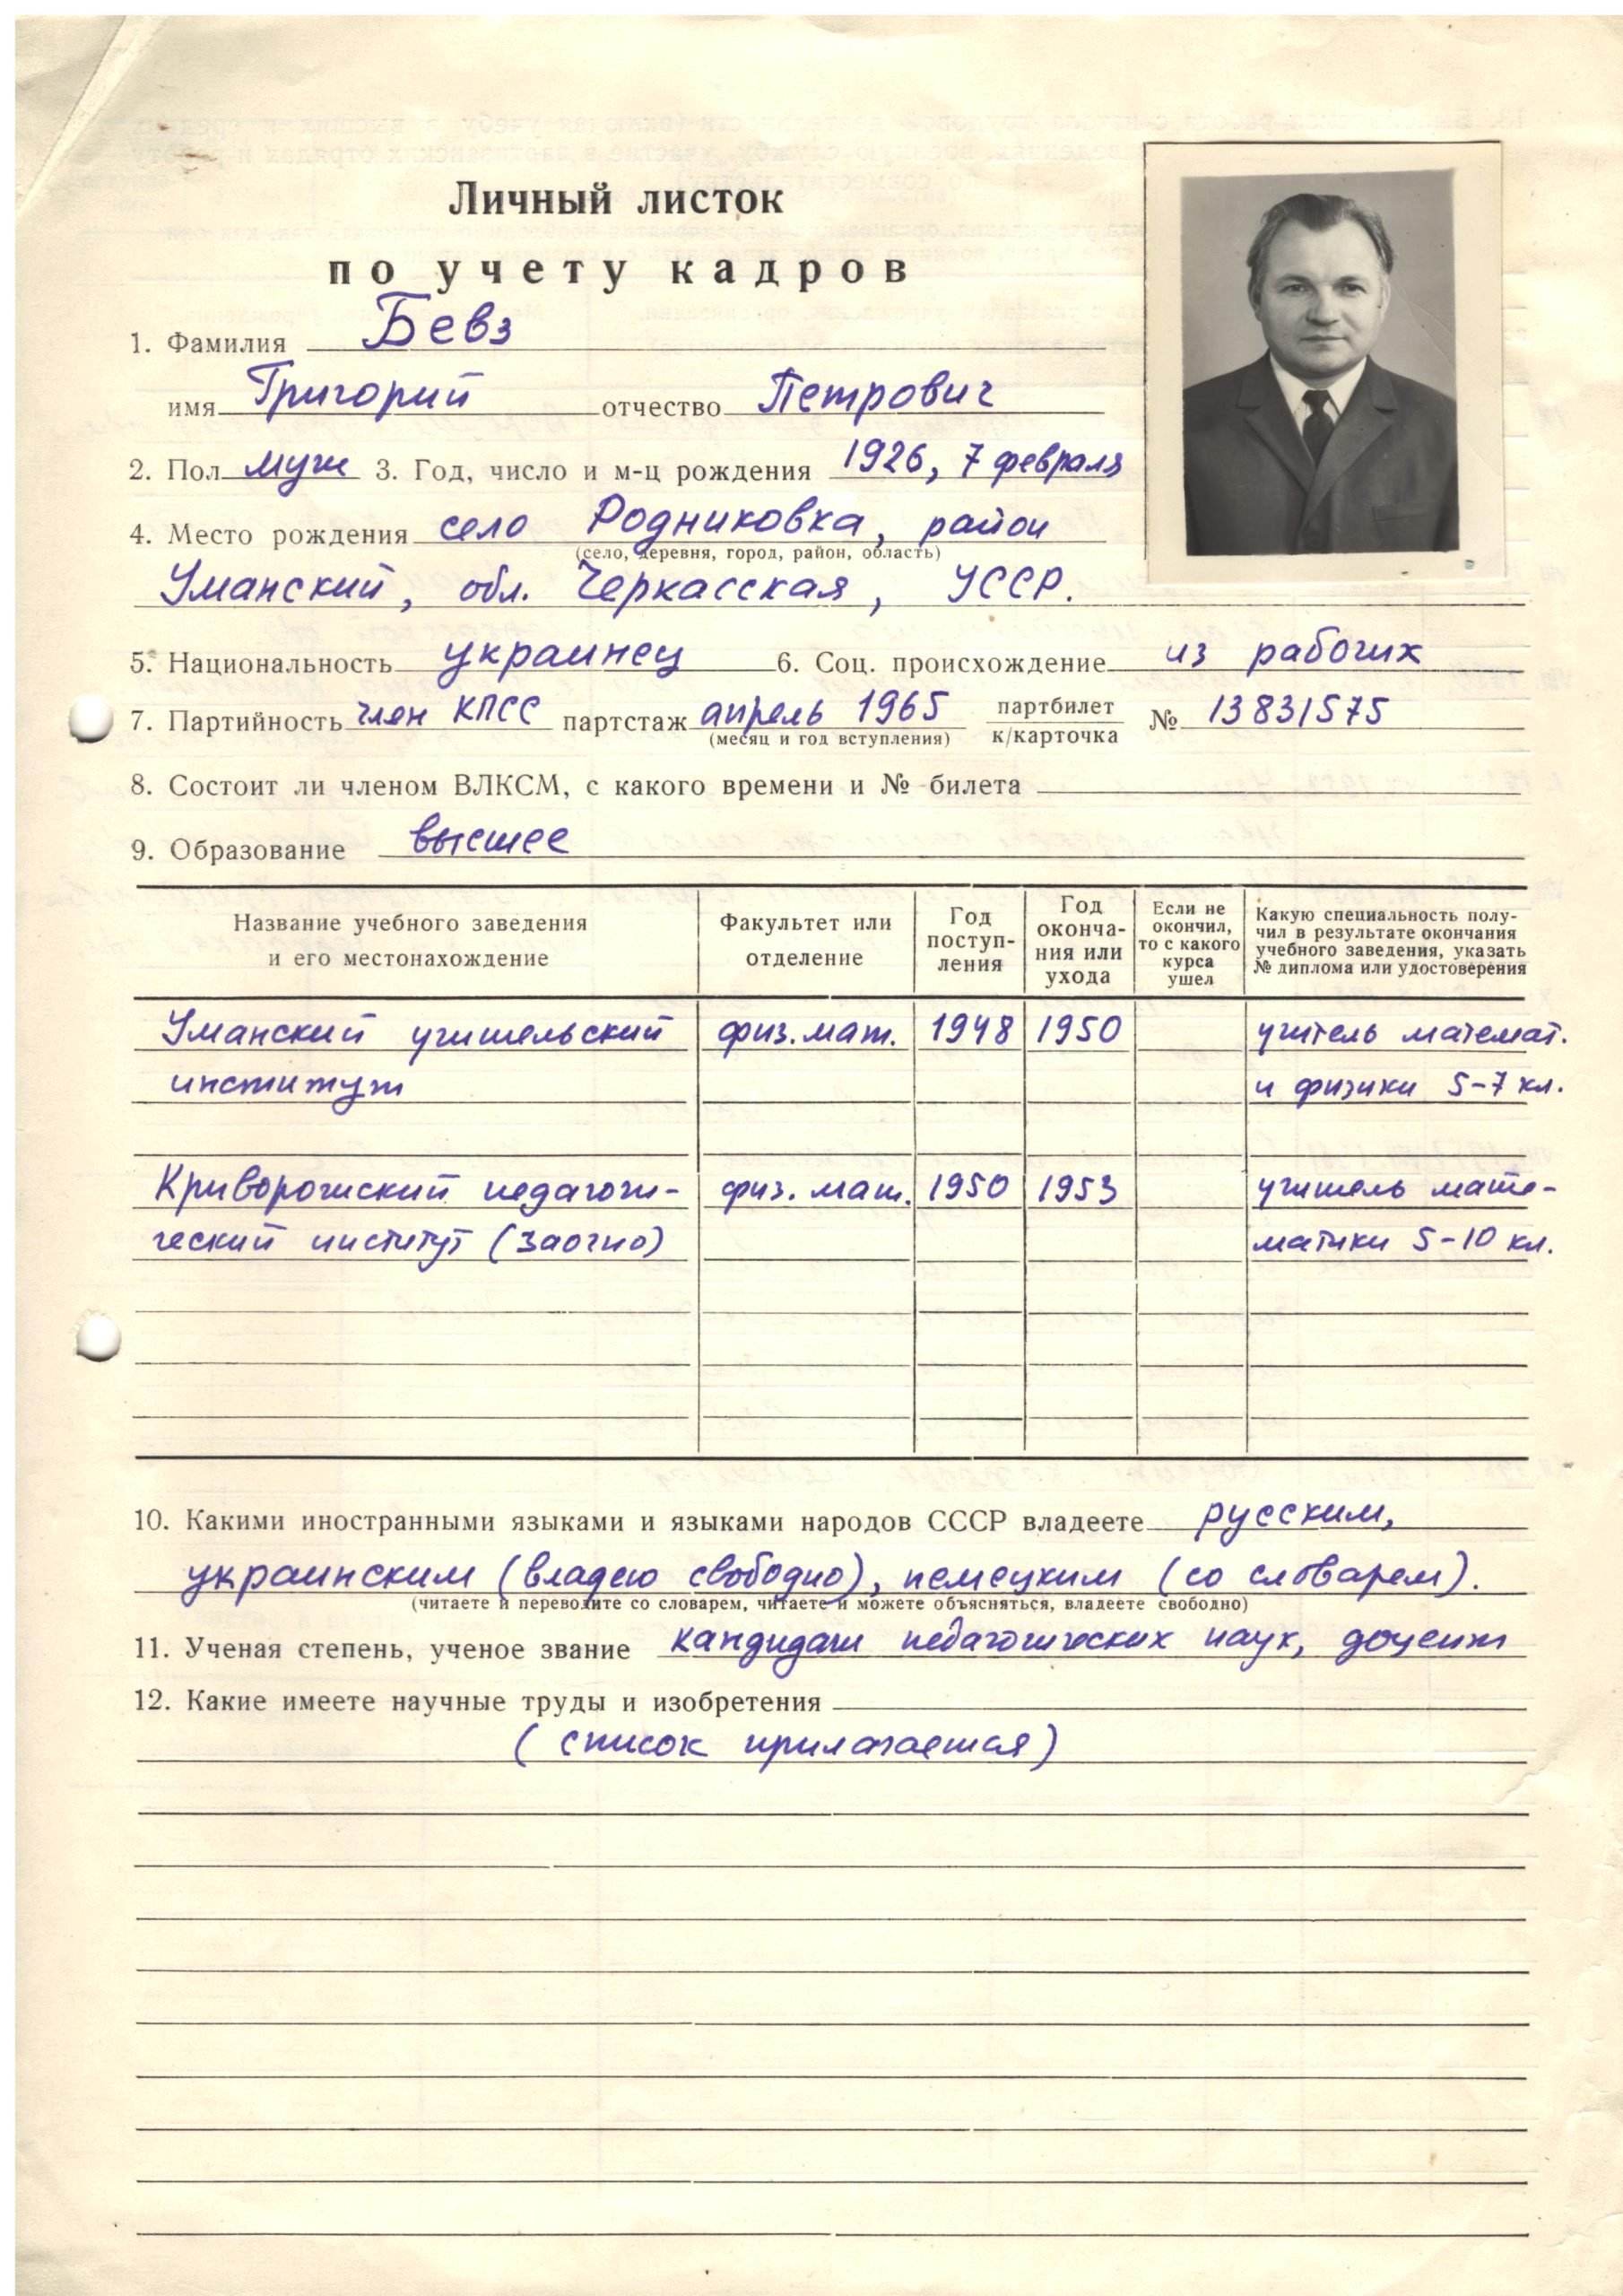 Личный листок
по учету кадров
1. Фамилия Бевз
имя Григорий отчество Петрович
2. Пол муж 3. Год, число и м-ц рождения 1926, 7 февраля
4. Место рождения село Родниковка, район
(село, деревня, город, район, область)
Уманский, обл. Черкасская, УССР.
5. Национальность украинец 6. Соц. происхождение из рабочих
7. Партийность член КПСС партстаж апрель 1965 партбилет № 13831575
(месяц и год вступления) к/карточка
8. Состоит ли членом ВЛКСМ, с какого времени и № билета
9. Образование высшее
Название учебного заведения и его местонахождение
Факультет или отделение
Год поступ-
ления
Год
оконча-
ния или
ухода
Если не
окончил,
то с какого
курса
ушел
Какую специальность полу-
чил в результате окончания
учебного заведения, указать
№ диплома или удостоверения
Уманский учительский физ.мат. 1948 1950 учитель математ.
институт и физики 5-7 кл.
Криворожский педагоги- физ. мат. 1950 1953 учитель мате-
ческий институт (заочно) матики 5-10 кл.
10. Какими иностранными языками и языками народов СССР владеете русским,
украинским (владею свободно), немецким (со словарем).
(читаете и переводите со словарем, читаете и можете объясняться, владеете свободно)
11. Ученая степень, ученое звание кандидат педагогических наук, доцент
12. Какие имеете научные труды и изобретения
(список прилагается)